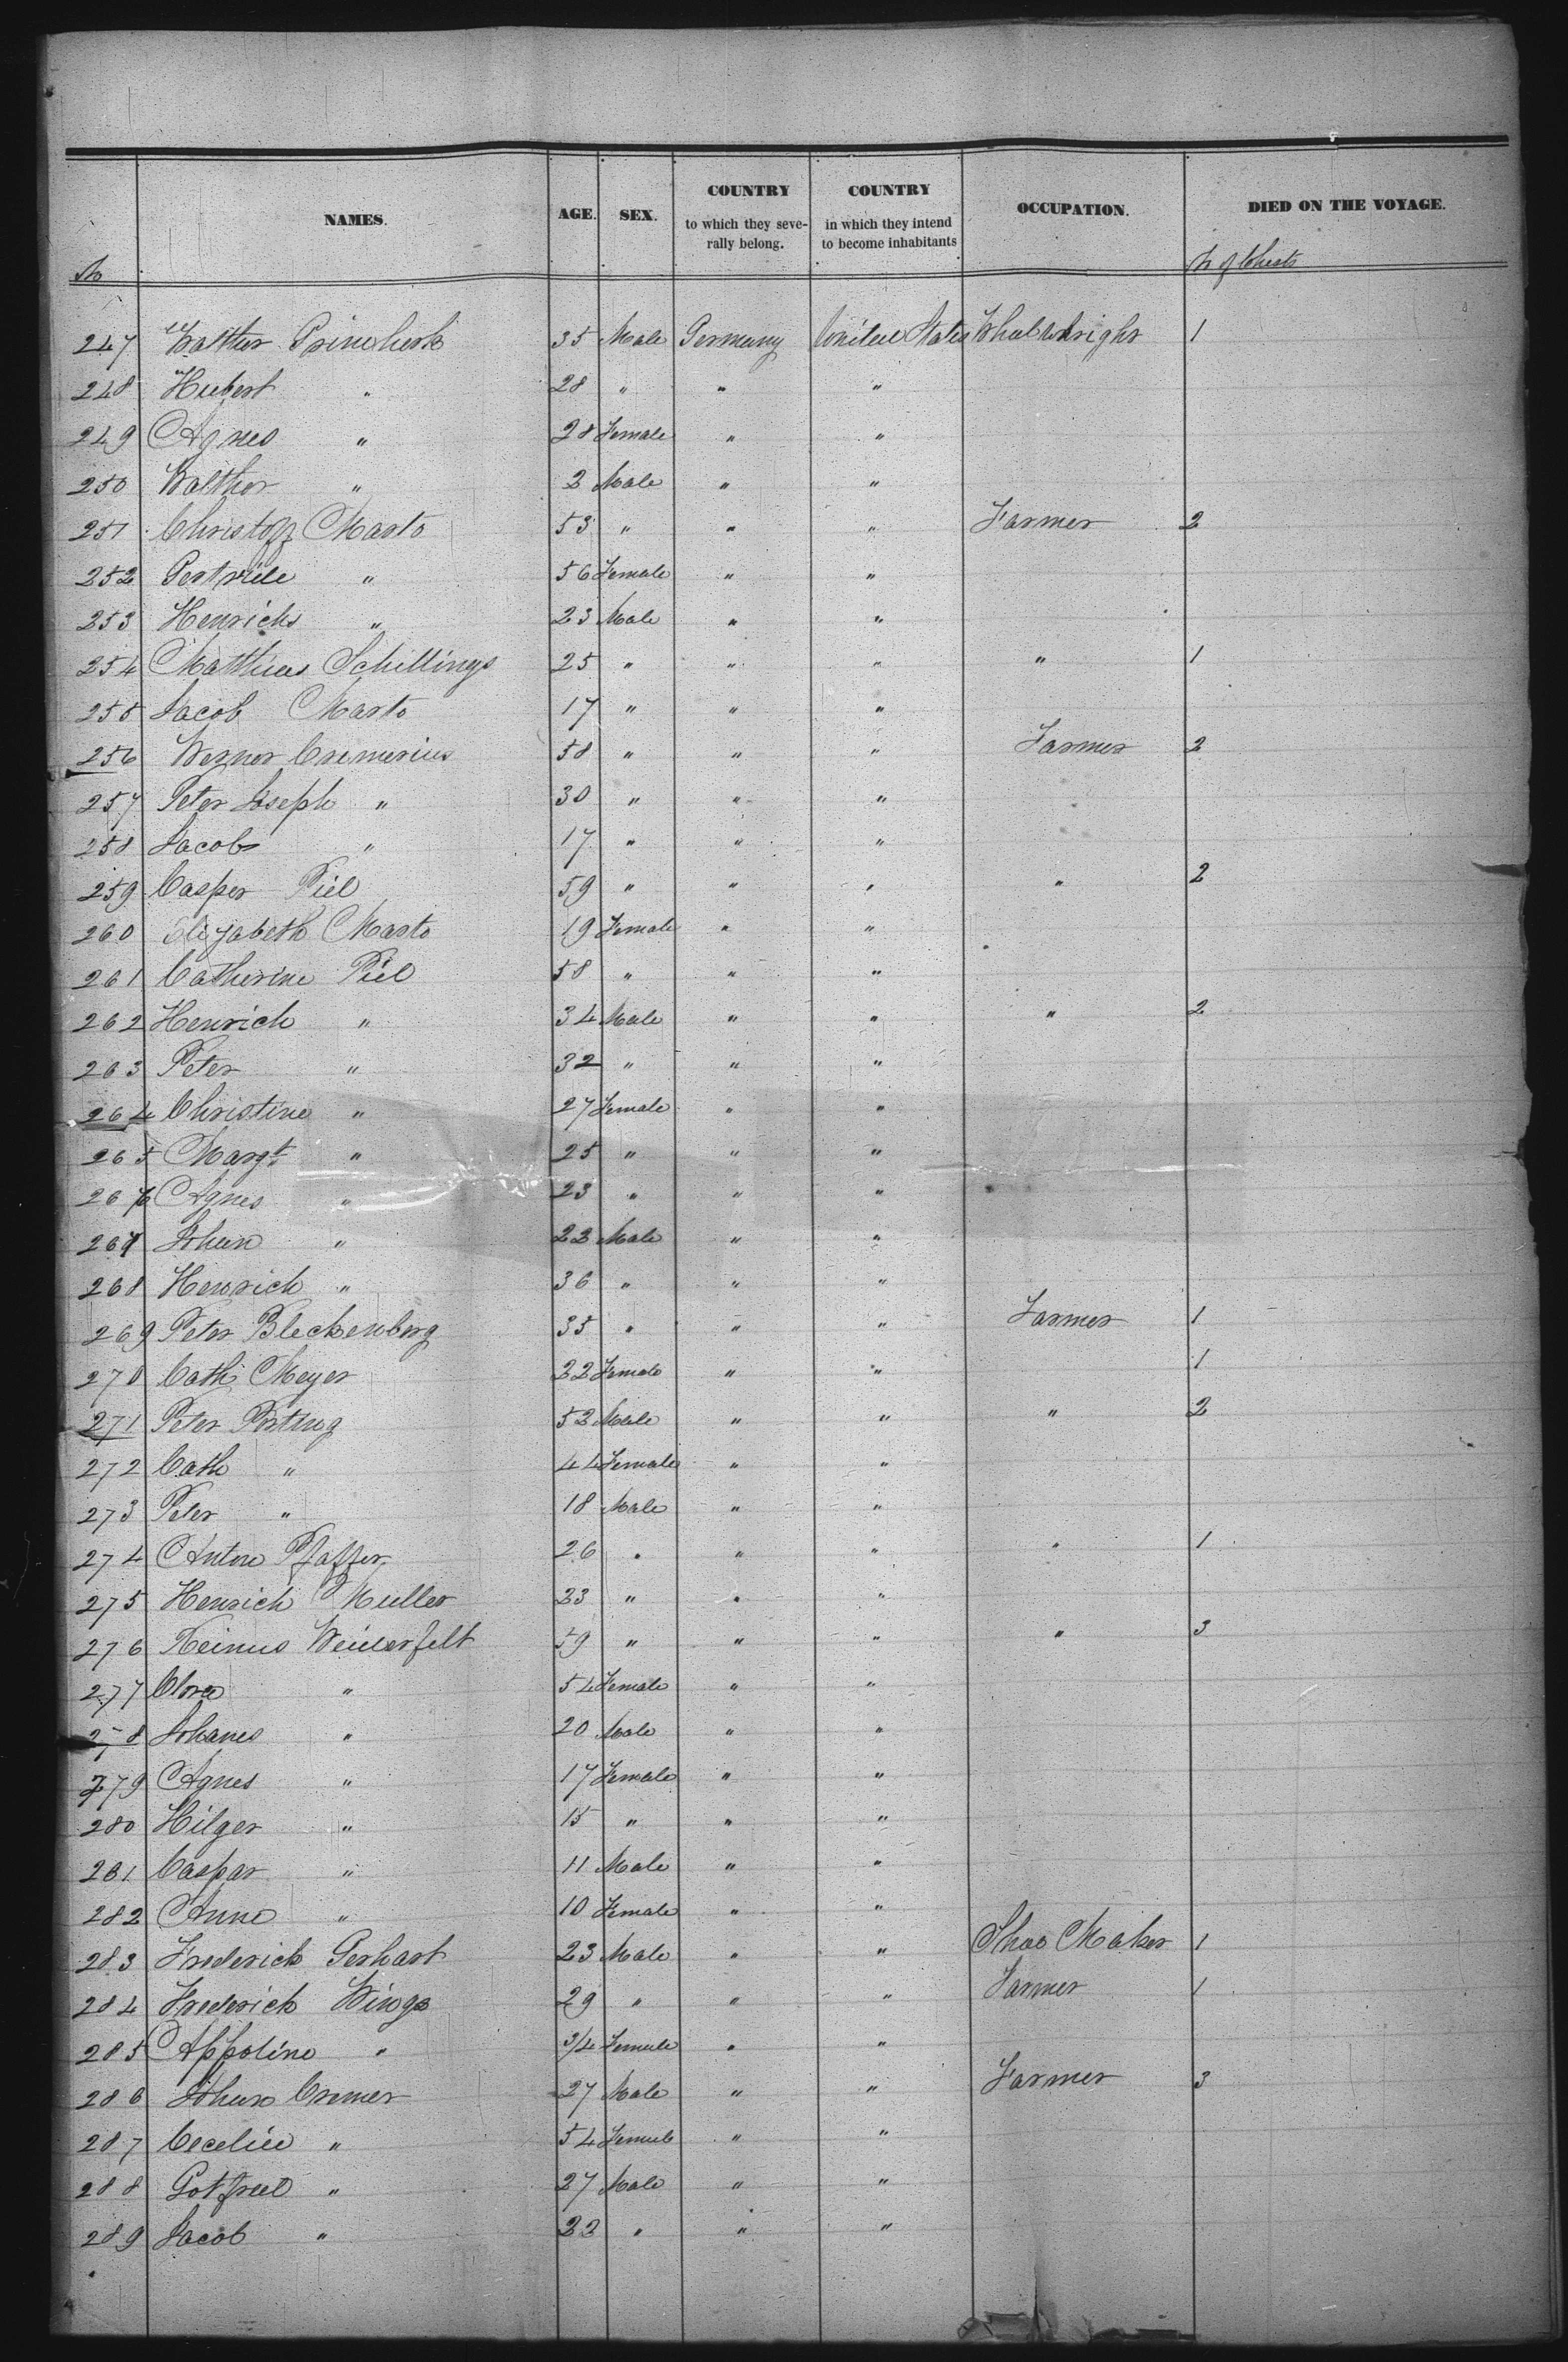 NAMES. AGE. SEX. COUNTRY to which they seve- COUNTRY in which they intend OCCUPATION. DIED ON THE VOYAGE.
rally belong. to become inhabitants
No No of Chests
247 Walther 35 Male Germany United States Wheelwright 1
248 Hubert " 28 " " "
249 Agnes " 28 Female " "
250 Walther " 2 Male " "
251 Christoff Marto 53 " " " Farmer 2
252 " 56 Female " "
253 Henrich " 23 Male " "
254 Mathias Schillings 25 " " " " 1
255 Jacob Marto 17 " " "
256 Werner Cremerius 58 " " " Farmer 2
257 Peter Joseph " 30 " " "
258 Jacob " 17 " " "
259 Casper Piel 59 " " " " 2
260 Elizabeth Marto 19 Female " "
261 Catherine Piel 58 " " "
262 Henrich " 34 Male " " " 2
263 Peter " 32 " " "
264 Christine " 27 Female " "
265 Margt " 25 " " "
266 Agnes " 23 " " "
267 Johan " 22 Male " "
268 Henrich " 36 " " "
269 Peter Bleckenberg 35 " " " Farmer 1
270 Cath Meyer 22 Female " " 1
271 Peter 52 Male " " " 2
272 Cath " 44 Female " "
273 Peter " 18 Male " "
274 Anton Pfaffer 26 " " " " 1
275 Henrich Muller 23 " " "
276 Weiderfelt 59 " " " " 3
277 Clora " 54 Female " "
278 Johanes " 20 Male " "
279 Agnes " 17 Female " "
280 Hilger " 15 " " "
281 Caspar " 11 Male " "
282 Anna " 10 Female " "
283 Frederick Gerhart 23 Male " " Shoe Maker 1
284 Frederick Wings 29 " " " Farmer 1
285 Appoline " 3/4 Female " "
286 Johan Cremer 27 Male " " Farmer 3
287 Cecelia " 54 Female " "
288 Gotfried " 27 Male " "
289 Jacob " 22 " " "